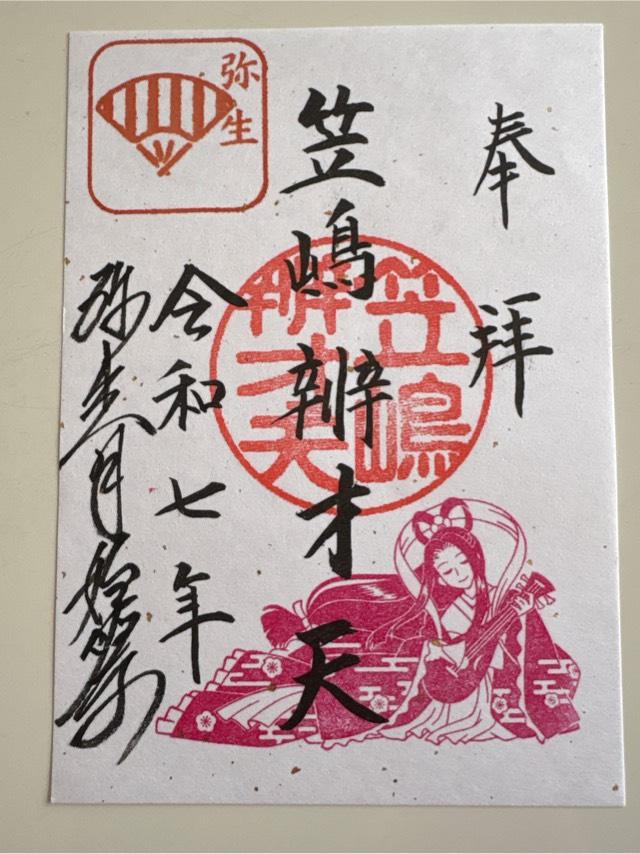 奉拝
笠嶋辨才天
笠嶋
辨才天
令和七年
弥生月
弥生